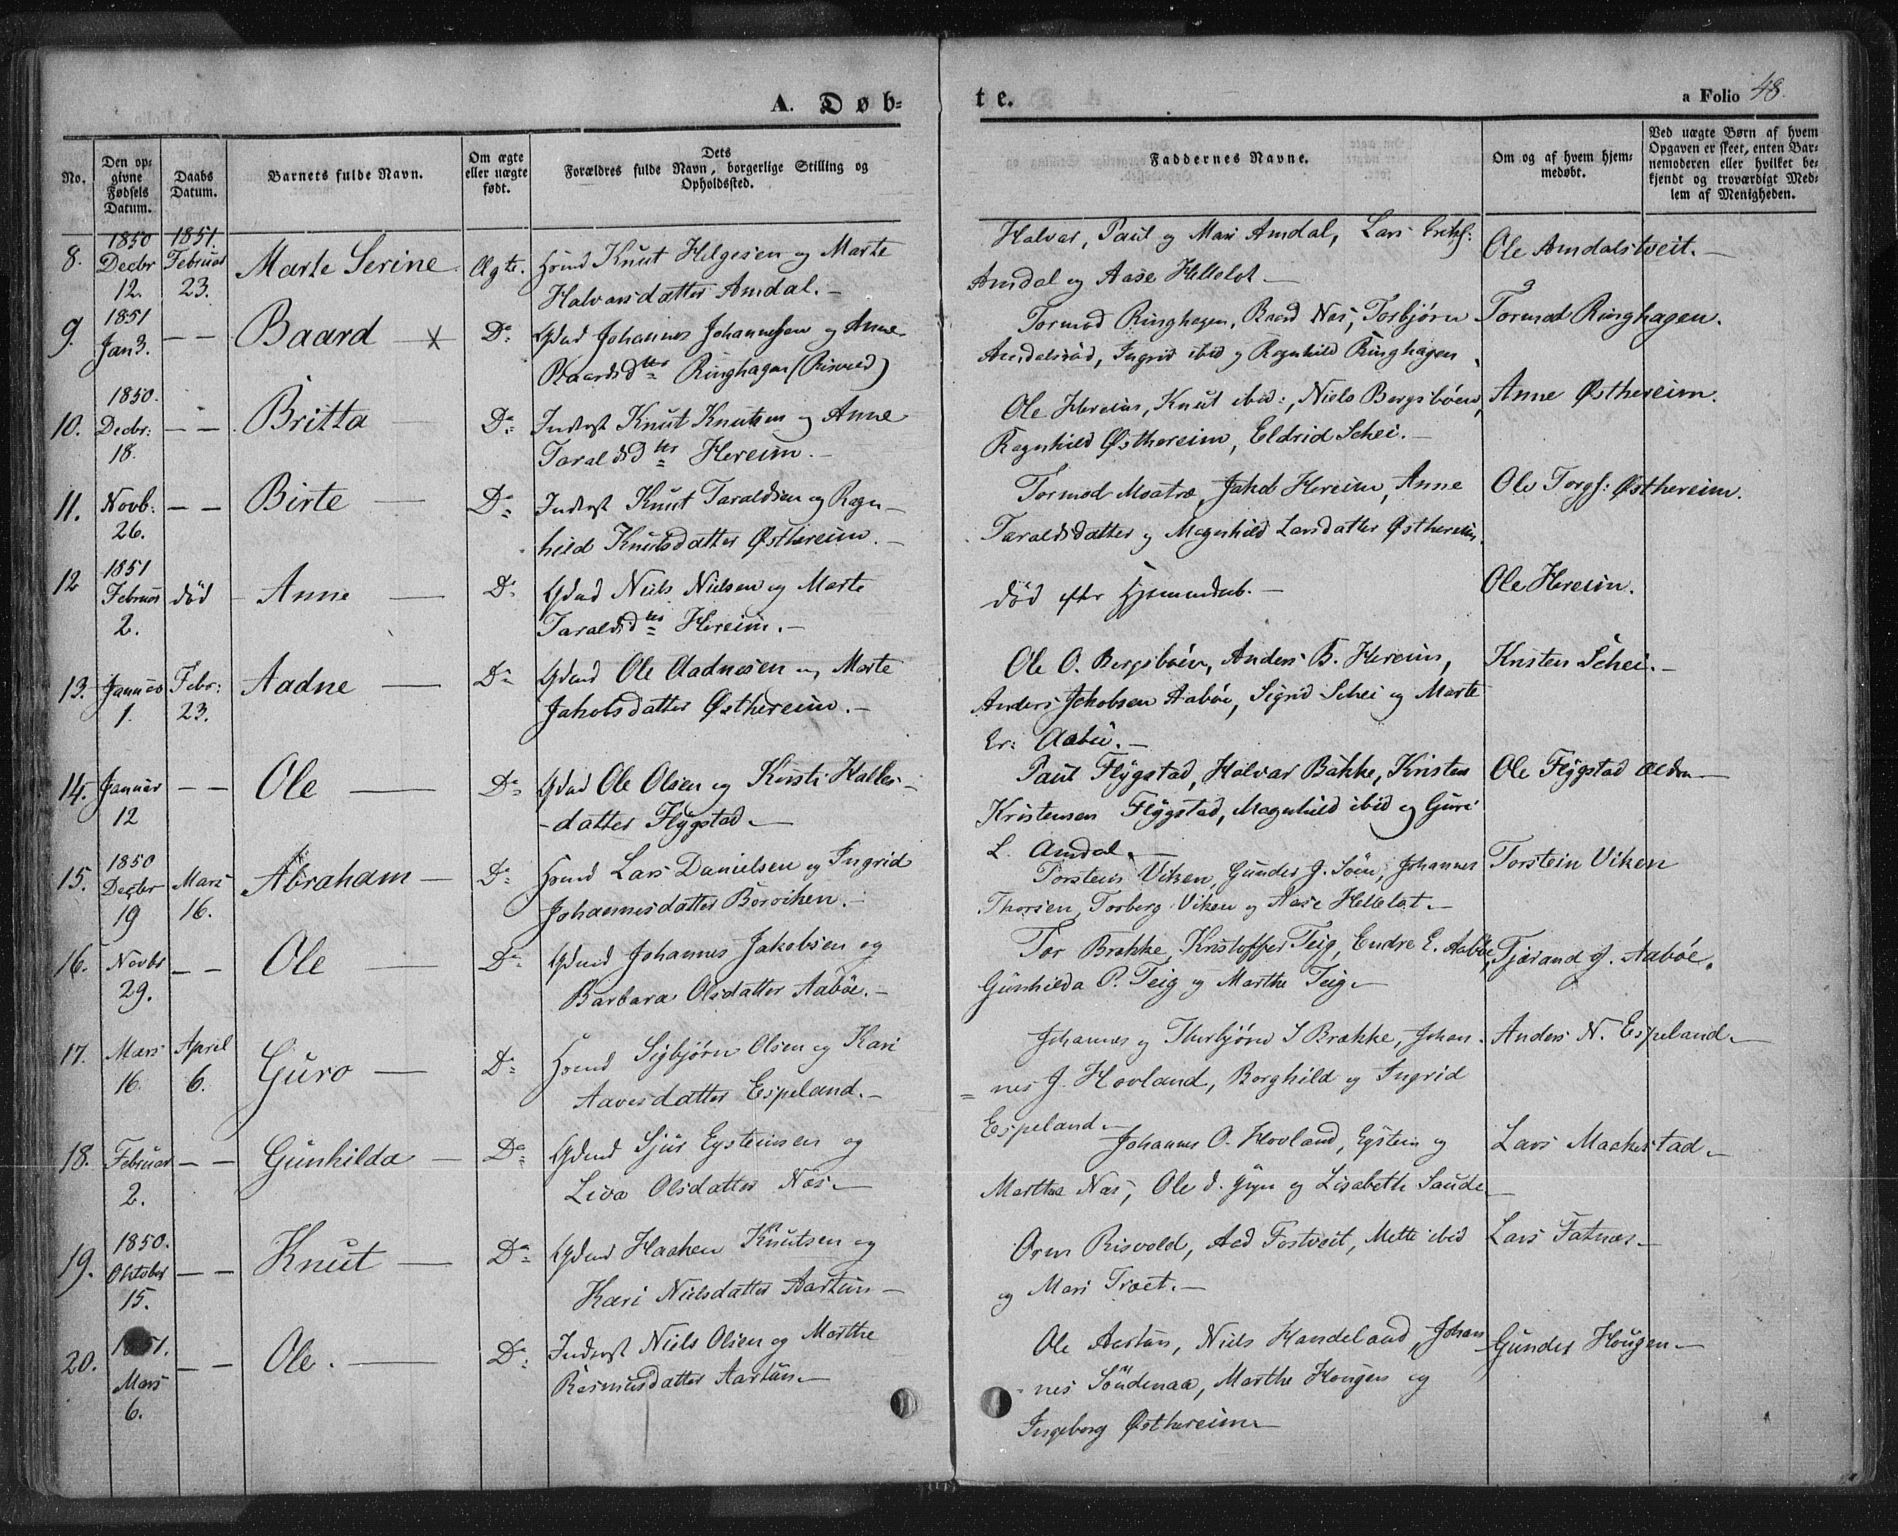 A. Døb-
te.
a Folio 48.
No.
Den op-
givne
Fødsels
Datum.
Daabs
Datum.
Barnets fulde Navn.
Om ægte
eller uægte
født.
Dets
Forældres fulde Navn, borgerlige Stilling og
Opholdssted.
Faddernes Navne.
Om og af hvem hjem-
medøbt.
Ved uægte Børn af hvem
Opgaven er skeet, enten Bar-
nemoderen eller hvilket be-
kjendt og troværdigt Med-
lem af Menigheden.
8.
1850
Decbr
12.
1851.
Februar
23.
Marte Serine
Ægte.
Hmd Knut Helgesen og Marte
Halvarsdatter Amdal.-
Halvar, Paul og Mari Amdal, Lars
Amdal og Aase Hellelot-
Ole Amdalstveit.-
9.
1851
Jan 3.
- -
Baard
D.
Gdmd Johannes Johannessen og Anne
Baardsdter Ringhagen (Risvold)
Tormod Ringhagen, Baard Næs, Torbjørn
Ingrid ibid og Ragnhild Ringhagen
Tormod Ringhagen.
10.
1850.
Decbr:
18.
- -
Britta
Do
Inderst Knut Knutsen og Anne
Taraldsdter Hereim.-
Ole Hereim, Knut ibid:, Niels Bergsbøen,
Ragnhild Østhereim, Eldrid Schei.-
Anne Østhereim.
11.
Novb:
26.
- -
Birte -
Do
Inderst Knut Taraldsen og Ragn-
hild Knutsdatter Østhereim.-
Tormod Moatræ, Jakob Hereim, Anne
Taraldsdatter og Magnhild Larsdatter Østhereim.
Ole Torgs: Østhereim.
12
1851
Februar
2.
død
Anne -
D.
Gdmd Niels Nielsen og Marte
Taraldsdter Hereim.-
død efter Hjemmedaab.-
Ole Hereim.
13.
Januar
1.
Febr:
23.
Aadne -
Do
Gdmd Ole Aadnesen og Marte
Jakobsdatter Østhereim.-
Ole O. Bergsbøen, Anders B. Hereim,
Anders Jakobsen Aabøe, Sigrid Schei og Marte
Er: Aabø.-
Kristen Schei.-
14.
Januar
12
- -
Ole -
Do
Gdmd Ole Olsen og Kirsti Halles-
-datter Flygstad.-
Paul Flygstad, Halvar Bakke, Kristen
Kristensen Flygstad, Magnhild ibid og Guri
L. Amdal.-
Ole Flygstad ældre-
15.
1850
Decbr
19
Mars
16.
Abraham-
Do
Hmd Lars Danielsen og Ingrid
Johannesdatter Børviken.-
Torstein Viken, Gunder J. Søen, Johannes
Thorsen, Torberg Viken og Aase Hellelot.-
Torstein Viken
16.
Novbr
29.
- -
Ole -
Do
Gdmd Johannes Jakobsen og
Barbara Olsdatter Aabøe.-
Tor Brække, Kristoffer Teig, Endre E. Aabøe,
Gunhilda P. Teig og Marthe Teig.-
Tjærand J. Aabøe.
17.
Mars
16.
April
6.
Guro -
Do
Hmd Sigbjørn Olsen og Kari
Aavesdatter Espeland.-
Johannes og Thorbjørn S Brække, Johan-
nes J. Hovland, Borghild og Ingrid
Espeland-
Anders N. Espeland-
18.
Februar
2.
- -
Gunhilda -
Do
Gdmd Sjur Eysteinsen og
Liva Olsdatter Næs.-
Johannes O. Hovland, Eystein og
Martha Næs, Ole og Lisabeth Saude-
Lars Maakestad-
19.
1850.
Oktober
15.
- -
Knut -
Do
Gdmd Haaken Knutsen og
Kari Nielsdatter Aartun-
Orm Risvold, Aad Fostveit, Mette ibid
og Mari Træet.-
Lars Fatnæs-
20.
1851.
Mars
6.
- -
Ole. -
Do
Inderst Niels Olsen og Marthe
Rasmusdatter Aartun-
Ole Aartun, Niels Handeland, Johan
nes Søndenaa, Marthe Hougen og
Ingeborg Østhereim-
Gunder Hougen-